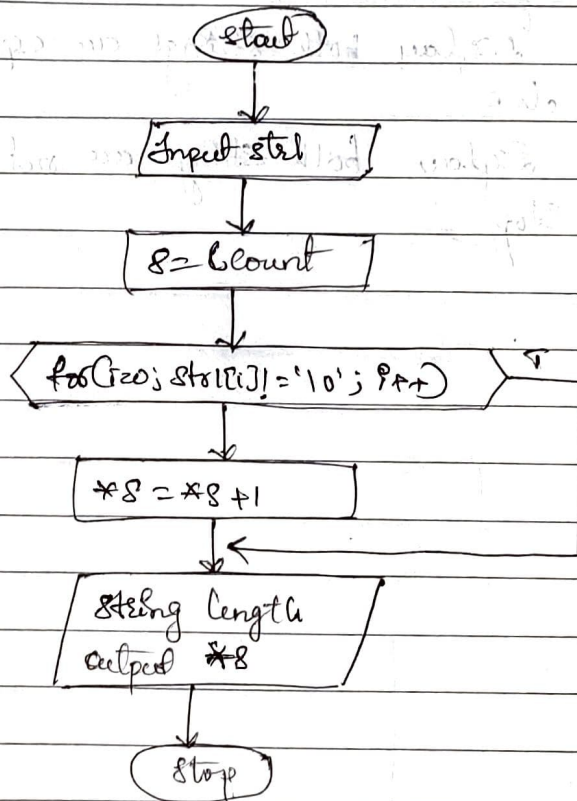 start
Input str1
s=&count
for(i=0; str1[i]!='\0'; i++)
T
*s = *s +1
string length
output *s
stop